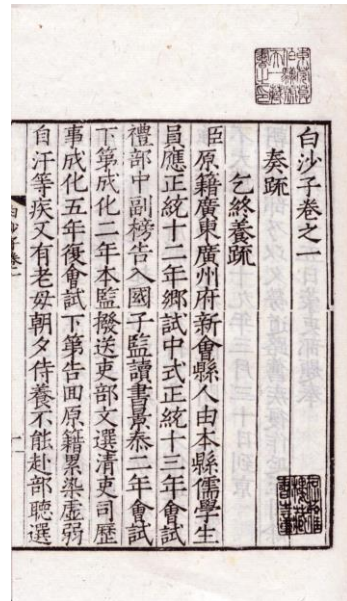 白沙子卷之一
奏疏
乞終養疏
臣原籍廣東廣州府新會縣人由本縣儒學生
員應正統十二年鄉試中式正統十三年會試
禮部中副榜告入國子監讀書景泰二年會試
下第成化二年本監撥送吏部文選清吏司歷
事成化五年復會試下第告回原籍累染虛弱
自汗等疾又有老母朝夕侍養不能赴部聽選
白沙子卷一